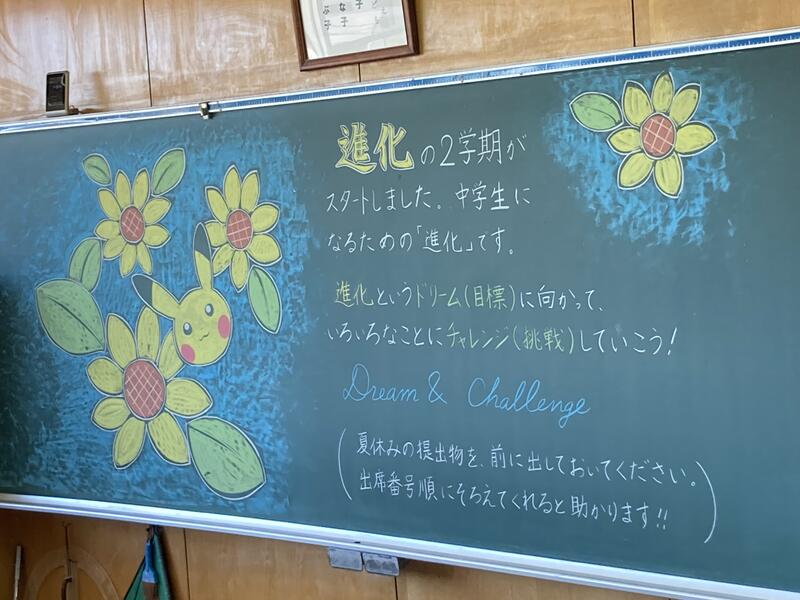 進化の2学期が
スタートしました。中学生に
なるための「進化」です。
進化というドリーム(目標)に向かって、
いろいろなことにチャレンジ(挑戦)していこう!
Dream & Challenge
(夏休みの提出物を、前に出しておいてください。
出席番号順にそろえてくれると助かります!!)